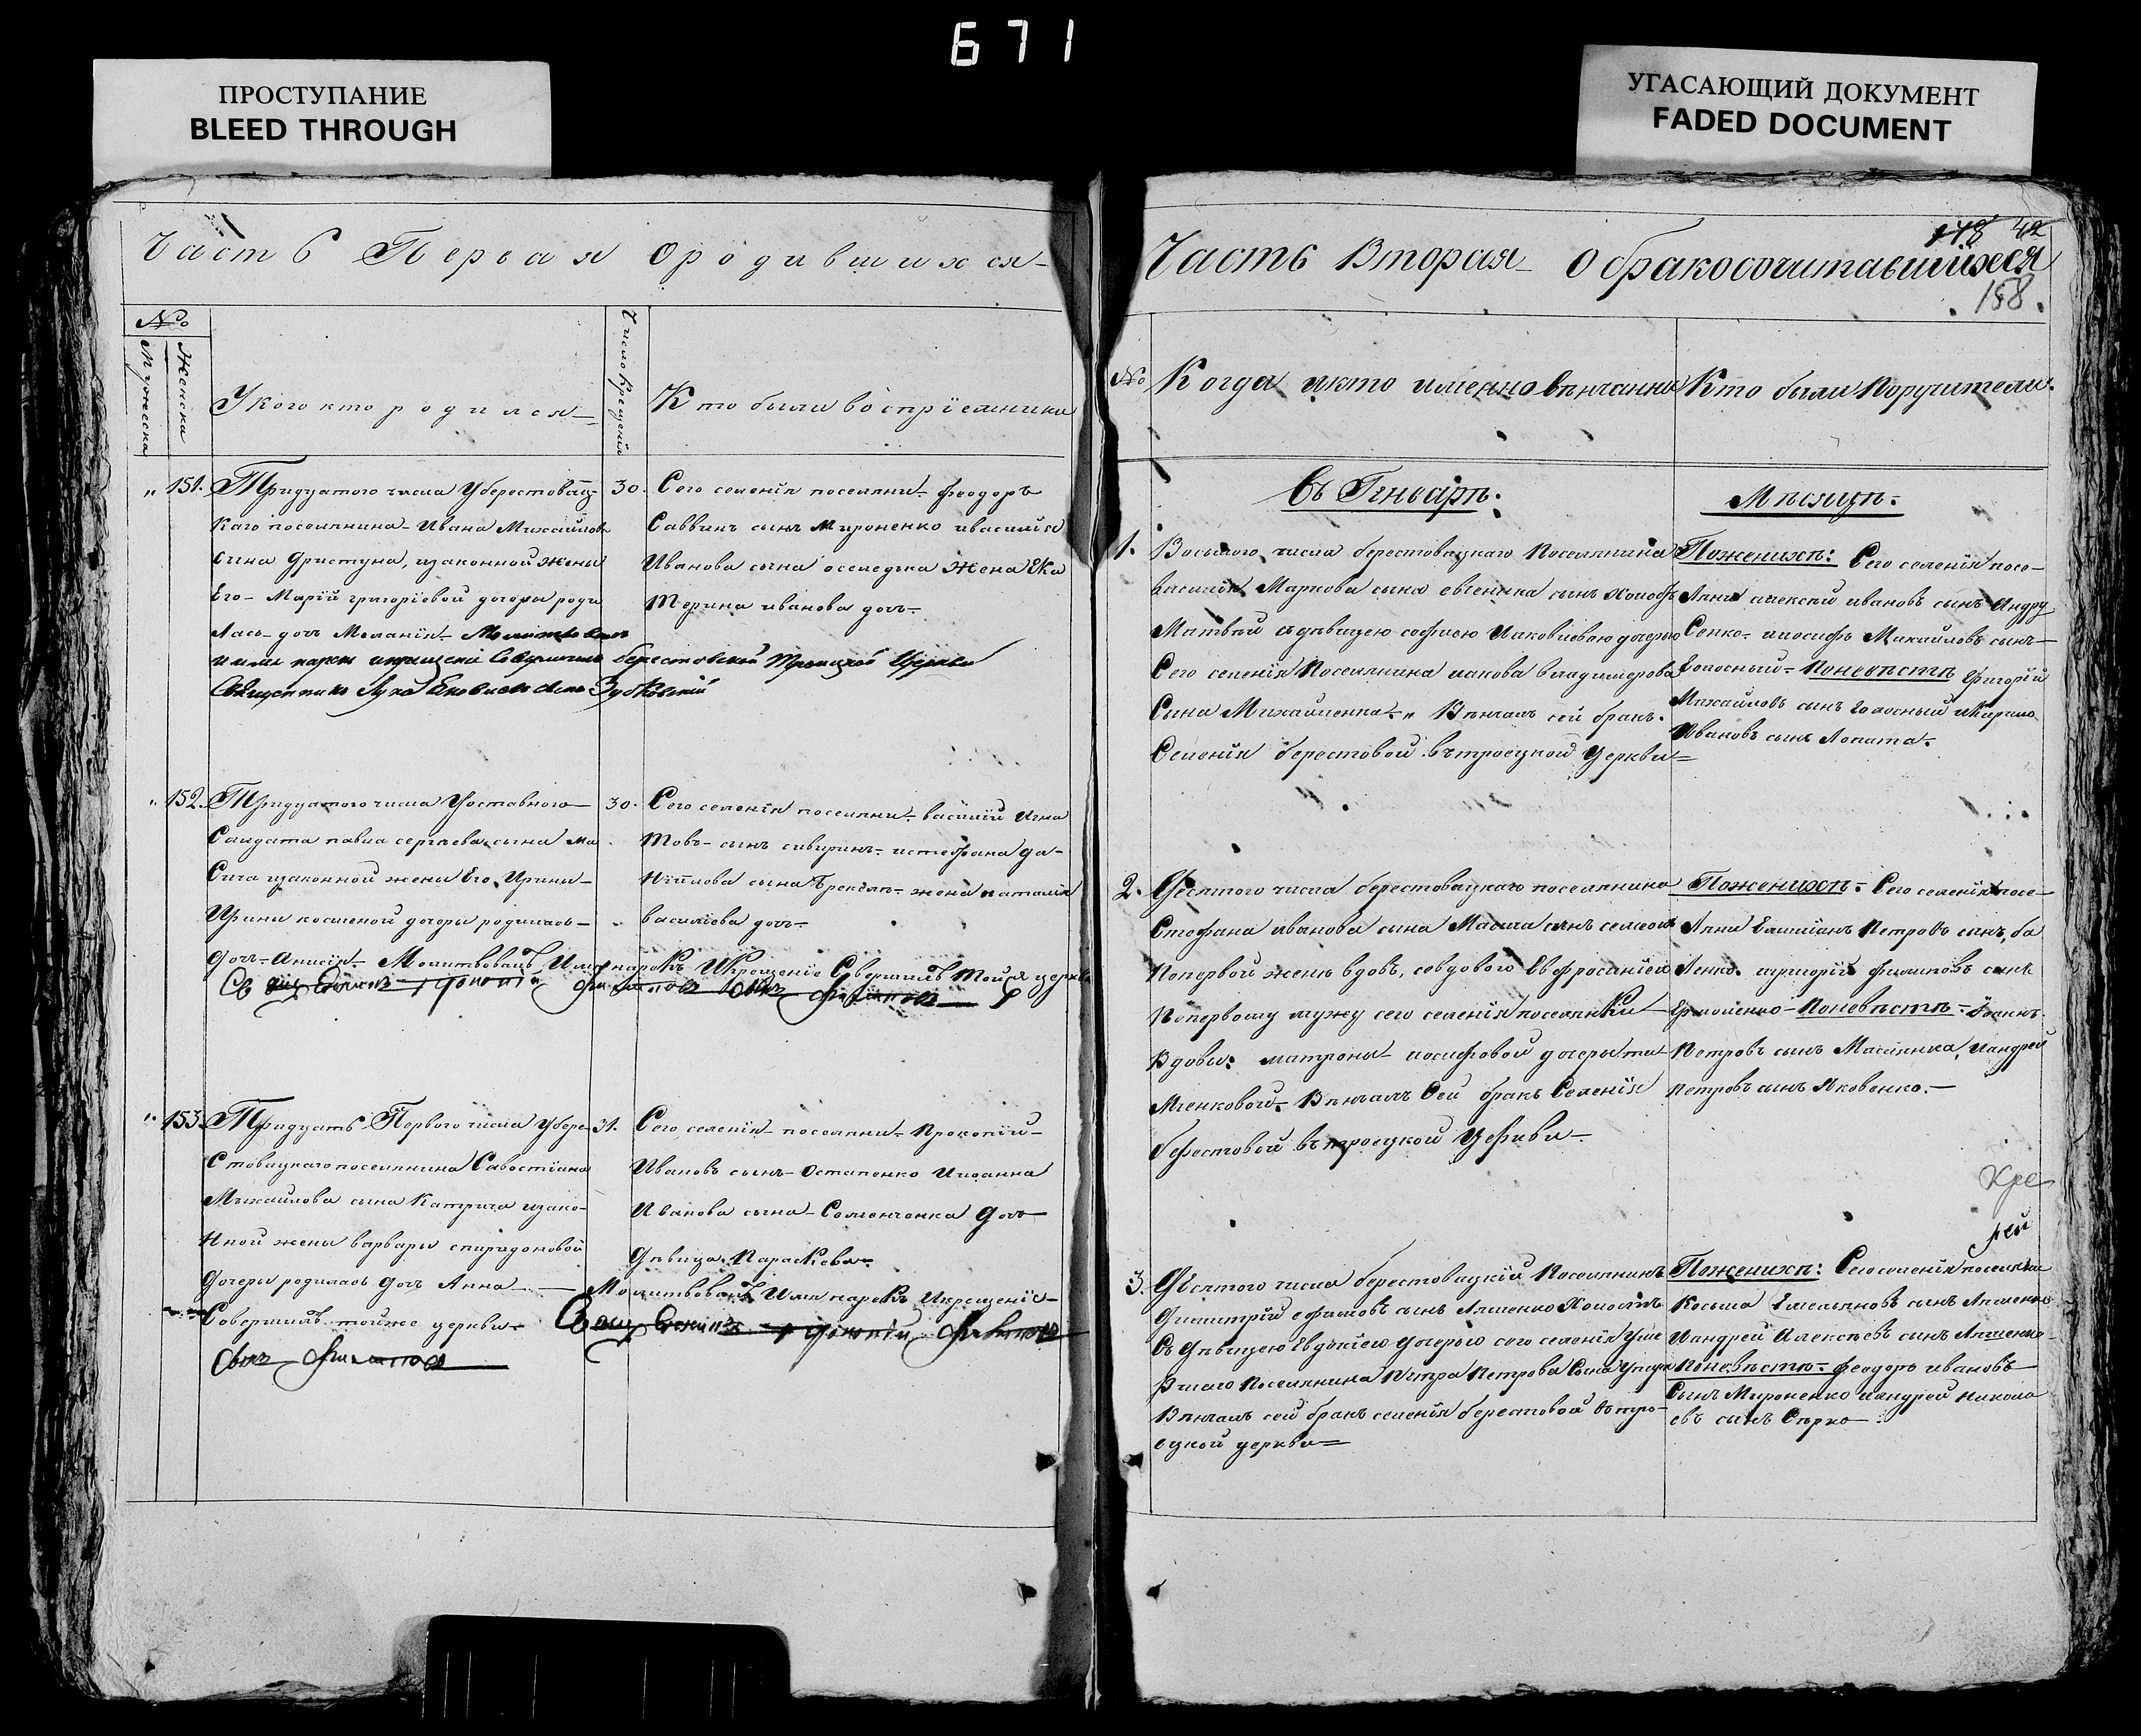 671
ПРОСТУПАНИЕ
BLEED THROUGH
УГАСАЮЩИЙ ДОКУМЕНТ
FADED DOCUMENT
Часть Первая О родившихся
№
Мужеска
Женска
У кого кто родился
Число Крещенія
Кто были воспріемники
151. Тридцатого числа Уберестовац-
каго поселянина Ивана Михайлова
сына Фристуна, изаконной жены
Его Маріи григоріевой дочеры роди
лась дочь Меланія Молитвовалъ
и имя нарекъ икрещеніе Совершилъ берестовской Троицкой Церкви
Священникъ Лука Зубковскій
30. Сего селенія поселяни Феодоръ
Саввинъ сынъ Мироненко ивасилія
Иванова сына оселедька Жена Ека
терина иванова дочь
152. Тридцатого числа Уотставного
Салдата павла сергѣева сына Ма
сича изаконной жены Его Ирины
Ирини космѣной дочеры родилась
дочь Анисія Молитвовалъ Имя нарекъ Икрещеніе Совершилъ тойже церкви
30. Сего селенія поселяни василій Игна
товъ сынъ сивиринъ истефана да-
ніилова сына жена наталія
василіева дочь
153. Тридцать Первого числа Убере-
стовацкаго поселянина Савостіана
Михайлова сына Катрича изако-
нной жены варвары спиридоновой
дочеры родилась дочь Анна
Совершилъ тойже церкви
31. Сего селенія поселяни Прокопій
Ивановъ сынъ Остапенко Ииоанна
Иванова сына Семенченка дочь
дѣвица Параскева
Молитвовалъ Имя нарекъ Икрещеніе
178 42
Часть Вторая О бракосочитавшихся
158.
№
Когда икто именно вѣнчанни
Кто были Поручители
Въ Генварѣ:
Мѣсяцѣ:
1. Восьмого числа берестовацкаго Поселянина
василія Маркова сына евсенка сынъ Холостъ
Матвѣй здѣвицею софіею Иаковлевою дочерю
Сего селенія Поселянина иакова владимерова
Сына Михайленка. Вѣнчалъ сей бракъ
Селенія берестовой вътроецкой Церкви
Поженихѣ: Сего селенія посе-
ляни алексѣй ивановъ сынъ Андру
Сенко иосифъ Михайловъ сынъ
Голосный Поневѣстѣ григорій
Михайловъ сынъ Голосный
Ивановъ сынъ Лопата
2. Десятого числа берестовацкаго поселянина
Стефана иванова сына Масича сынъ семеонъ
Попервой женѣ вдовъ, совдовою Евфросиніею
Попервому мужу сего селенія поселянки
Вдовы: матроны иосифовой дочеры ти-
мченковой Вѣнчалъ Сей бракъ Селенія
берестовой вътроецкой Церкви
Поженихѣ: Сего селенія посе-
ляни Емиліанъ Петровъ сынъ, ба
ленко игригорій филиповъ сынъ
Ермоленко Поневѣстѣ иоаннъ
Петровъ сынъ Масленка, иандрей
петровъ сынъ Яковенко
Кре
лей
3. Десятого числа берестовацкій Поселянинъ
димитрій ефимовъ сынъ Ляшенко Холостъ
Съ дѣвицею Евдокіею дочерью сего селенія Уме
ршаго Поселянина Петра Петрова Сына
Вѣнчалъ сей бракъ селенія берестовой вътро-
ецкой церкви
Поженихѣ: Сего селенія поселяни
Косьма Емельяновъ сынъ Ляшенко
Иандрей Алексѣевъ сынъ Ляшенко
Поневѣстѣ феодоръ ивановъ
Сынъ Мироненко иандрей никола
евъ сынъ Сѣрко